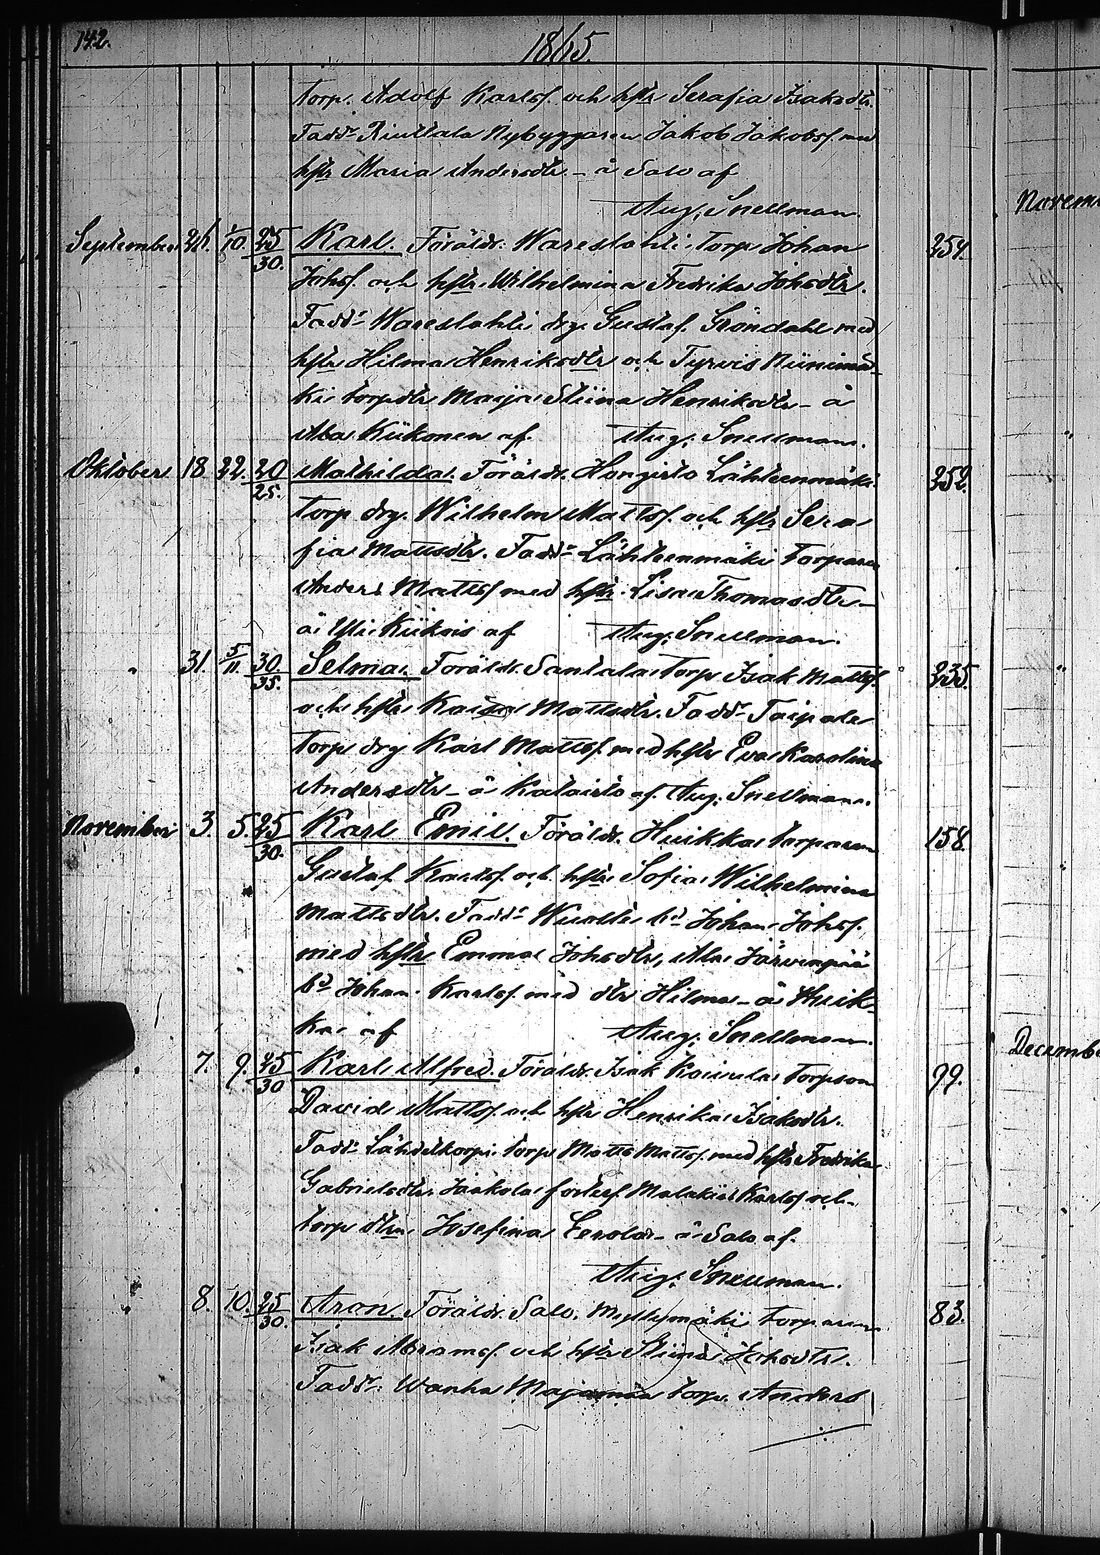 142.
1865.
torp. Adolf Karlsf. och hstr Serafia Isaksdtr.
Fadd: Rintala Nybyggaren Jakob Jakobsf. med
hstr Maria Andersdtr - å Salo af
Aug. Snellman.
September 26. 1/10. 25/30. Karl. Föräldr. Wareslahti Torp Johan 254.
Johsf. och hstr. Wilhelmina Fredrika Johsdtr.
Fadd: Wareslahti drg. Gustaf Gröndahl med
hstr Hilma Henriksdtr och Tyrvis Niinimä-
ki torpdtr Maija Stiina Henriksdtr - å
Ala Kiikonen af Aug. Snellman.
Oktober 18 22. 20/25. Mathilda. Föräldr. Hongisto Lähteenmäki 252.
torp drg. Wilhelm Mattsf. och hstr Sera
fia Mattsdtr. Fadd: Lähteenmäki torparen
Anders Mattsf med hstr. Lisa Thomasdtr -
å Yli Kiikois af Aug. Snellman.
" 31. 5/11. 30/35. Selma. Föräldr. Santala torp Isak Mattsf. 235.
och hstr Kaisa Mattsdtr. Fadd: Taipale
torp drg Karl Mattsf. med hstr Eva Karolina
Andersdtr - å Kalaisto af. Aug. Snellman.
November 3. 5. 25/30. Karl Emil. Föräldr. Huikka torparen 158.
Gustaf Karlsf. och hstr Sofia Wilhelmina
Mattsdtr. Fadd: bd Johan Johsf.
med hstr Emma Johsdtr, Ala Järvenpää
bd Johan Karlsf. med dtr Hilma - å Huik-
ka af Aug. Snellman.
" 7. 9. 25/30 Karl Alfred. Föräldr. Isak Koivula torpson 99.
David Mattsf. och hstr Henrika Isaksdtr.
Fadd: Lähdekorpi torp Matts Mattsf. med hstr Fredrika
Gabrielsdtr, Jaakola Malakias Karlsf och
torp dtrn Josefina - å Salo af.
Aug. Snellman.
" 8. 10. 25/30. Aron. Föräldr. Salo, Myllymäki torparen 83.
Isak Abramsf. och hstr Stiina Johsdtr.
Fadd: Wanha torp. Anders
Novem
"
"
Decembe